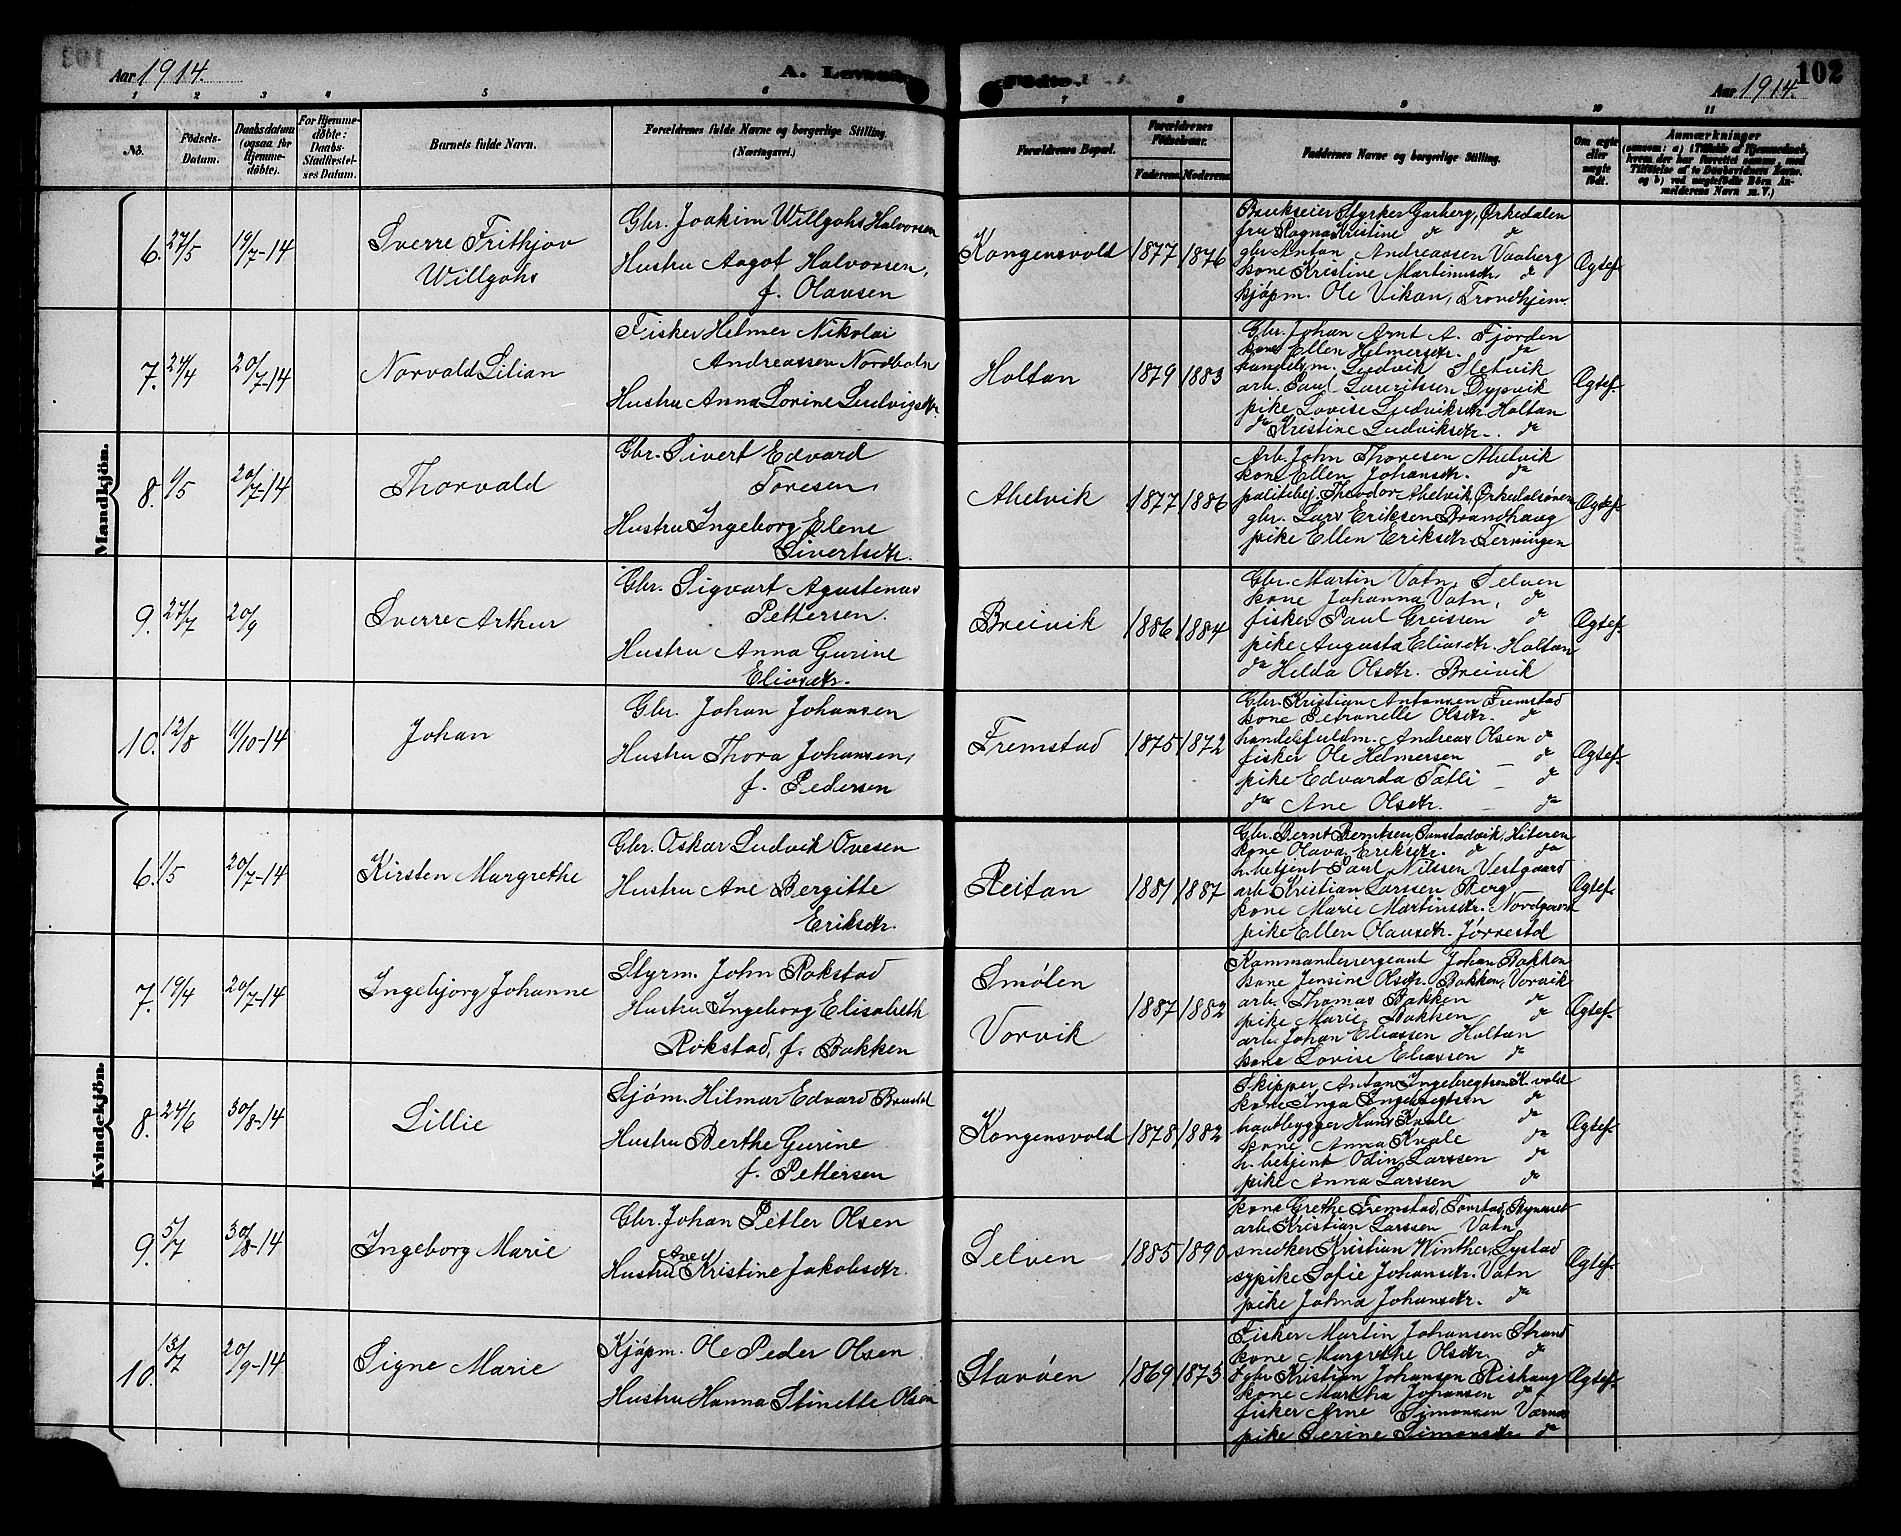 Aar 1914. A. Levende Fødte. Aar 1914. 102
1 2 3 4 5 6 7 8 9 10 11
No.
Fødsels-
Datum.
Daabsdatum
(ogsaa for
Hjemme-
døbte).
For Hjemme-
døbte:
Daabs-
Stadfæstel-
ses Datum.
Barnets fulde Navn.
Forældrenes fulde Navne og borgerlige Stilling.
(Næringsvei.)
Forældrenes Bopæl.
Forældrenes
Fødselsaar.
Faderens. Moderens.
Faddernes Navne og borgerlige Stilling.
Om ægte
eller
uægte
født.
Anmærkninger
(saasom: a) i Tilfælde af Hjemmedaab,
hvem der har forrettet samme, med
Tilføielse af to Daabsvidners Navne.
og b) ved uægtefødte Børn An-
melderens Navn m. V.)
Mandkjön.
6. 27/5 19/7-14
Sverre Frithjov
Willgohs
Gbr. Joakim Willgohs Halvorsen
Hustru Aagot Halvorsen,
f. Olausen
Kongensvold 1877 1876
Brukseier Styrker Garberg, Ørkedalen
fru Ragna Kristine do do
gbr. Anton Andreassen Vaaberg
kone Kristine Martinusdtr. do
kjøpm. Ole Vikan, Trondhjem.
Ægtef.
7. 24/4 20/7-14
Norvald Lilian
Fisker Helmer Nikolai
Andreassen Nordholm
Hustru Anna Lovine Ludvigsdtr.
Holtan 1879 1883
Gbr. Johan Arnt A. Fjorden
kone Ellen Helmersdtr. do
handelsm. Ludvik Sletvik
arb. Paul Lauritssen Dypvik
pike Lovise Ludviksdtr. Holtan
do Kristine Ludviksdtr. do
Ægtef.
8. 1/5 20/7-14
Thorvald
Gbr. Sivert Edvard
Toresen,
Hustru Ingeborg Elene
Sivertsdtr.
Ahelvik 1877 1886
Arb. John Thoresen Ahelvik
kone Ellen Johansdtr. do
politibtj. Theodor Ahelvik, Ørkedalsøren
gbr. Lars Eriksen Brandhaug
pike Ellen Eriksdtr. Terningen
Ægtef.
9. 27/7 20/9
Sverre Arthur
Gbr. Sigvart Agustinas
Pettersen.
Hustru Anna Gurine
Eliasdtr.
Breivik 1886 1884
Gbr. Martin Vatn, Selven
kone Johanna Vatn, do
fisker Paul Greissen do
pike Augusta Eliasdtr. Holtan
do Helda Olsdtr. Breivik
Ægtef.
10. 12/8 11/10-14
Johan
Gbr. Johan Johansen
Hustru Thora Johansen,
f. Pedersen
Fremstad 1875 1872
Gbr. Kristian Antonsen Fremstad
kone Petronelle Olsdtr. do
handelsfuldm. Andreas Olsen do
fisker Ole Helmersen - do
pike Edvarda Tatli - do
do Ane Olsdtr. - do
Ægtef.
Kvindekjön.
6. 1/5 20/7-14
Kirsten Margrethe
Gbr. Oskar Ludvik Ovesen
Hustru Ane Bergitte
Eriksdtr.
Reitan 1881 1887
Gbr. Bernt Berntsen, Sunstadvik, Hiteren
kone Olava Eriksdtr. do do
h.betjent Paul Nilssen Vestgaard
arb. Kristian Larssen Berg
kone Marie Martinsdtr. Nordgaard
pike Ellen Olausdtr. Jørrestd
Ægtef.
7. 19/4 20/7-14
Ingebjørg Johanne
Styrm. John Rokstad
Hustru Ingeborg Elisabeth
Rokstad, f. Bakken
Smølen
Vorvik
1887 1882
Kommandersergeant Johan Bakken
kone Jensine Olsdtr. Bakken, Vorvik
arb. Thomas Bakken do
pike Marie Bakken do
arb. Johan Eliassen Holtan
kone Lovise Eliassen do
Ægtef.
8. 24/6 30/8-14
Lillie
Sjøm. Hilmar Edvard
Hustru Berthe Gurine
f. Pettersen
Kongensvold 1878 1882
Skipper Anton Ingebregtsen K.vold
kone Inga Ingebregtsen do
baatbygger Hans Kvale do
kone Anna Kvale do
h. betjent Odin Larssen do
pike Anna Larssen do
Ægtef.
9. 5/7 30/8-14
Ingeborg Marie
Gbr. Johan Petter Olsen
Hustru Ane Kristine Jakobsdtr.
Selven 1885 1890
kone Grethe Fremstad, Tonstad, Bynæsset
arb. Kristian Larssen Vatn
snedker Kristian Winther, Lystad
sypike Sofie Johansdtr. Vatn
pike Johna Johansdtr. do
Ægtef.
10. 13/7 20/9-14
Signe Marie
Kjøpm. Ole Peder Olsen
Hustru Hanna Stinette Olsen
Stavøen 1869 1873
Fisker Martin Johansen Strand
kone Margrethe Olsdtr. do
gbr. Kristian Johansen Rishaug
kone Martha Johansen do
fisker Arne Simonsen Værnes
pike Serine Simonsdtr. do
Ægtef.